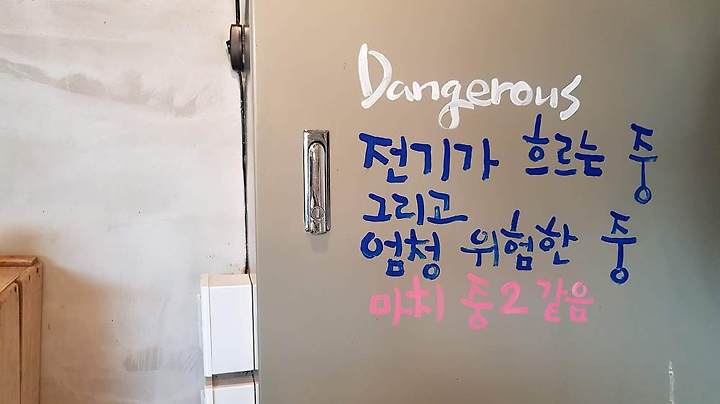 Dangerous
전기가 흐르는 중
그리고
엄청 위험한 중
마치 중2 같음